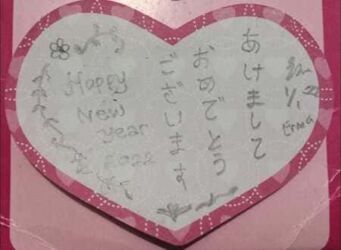 あけまして
おめでとう
ございます
Happy
New
year
2022